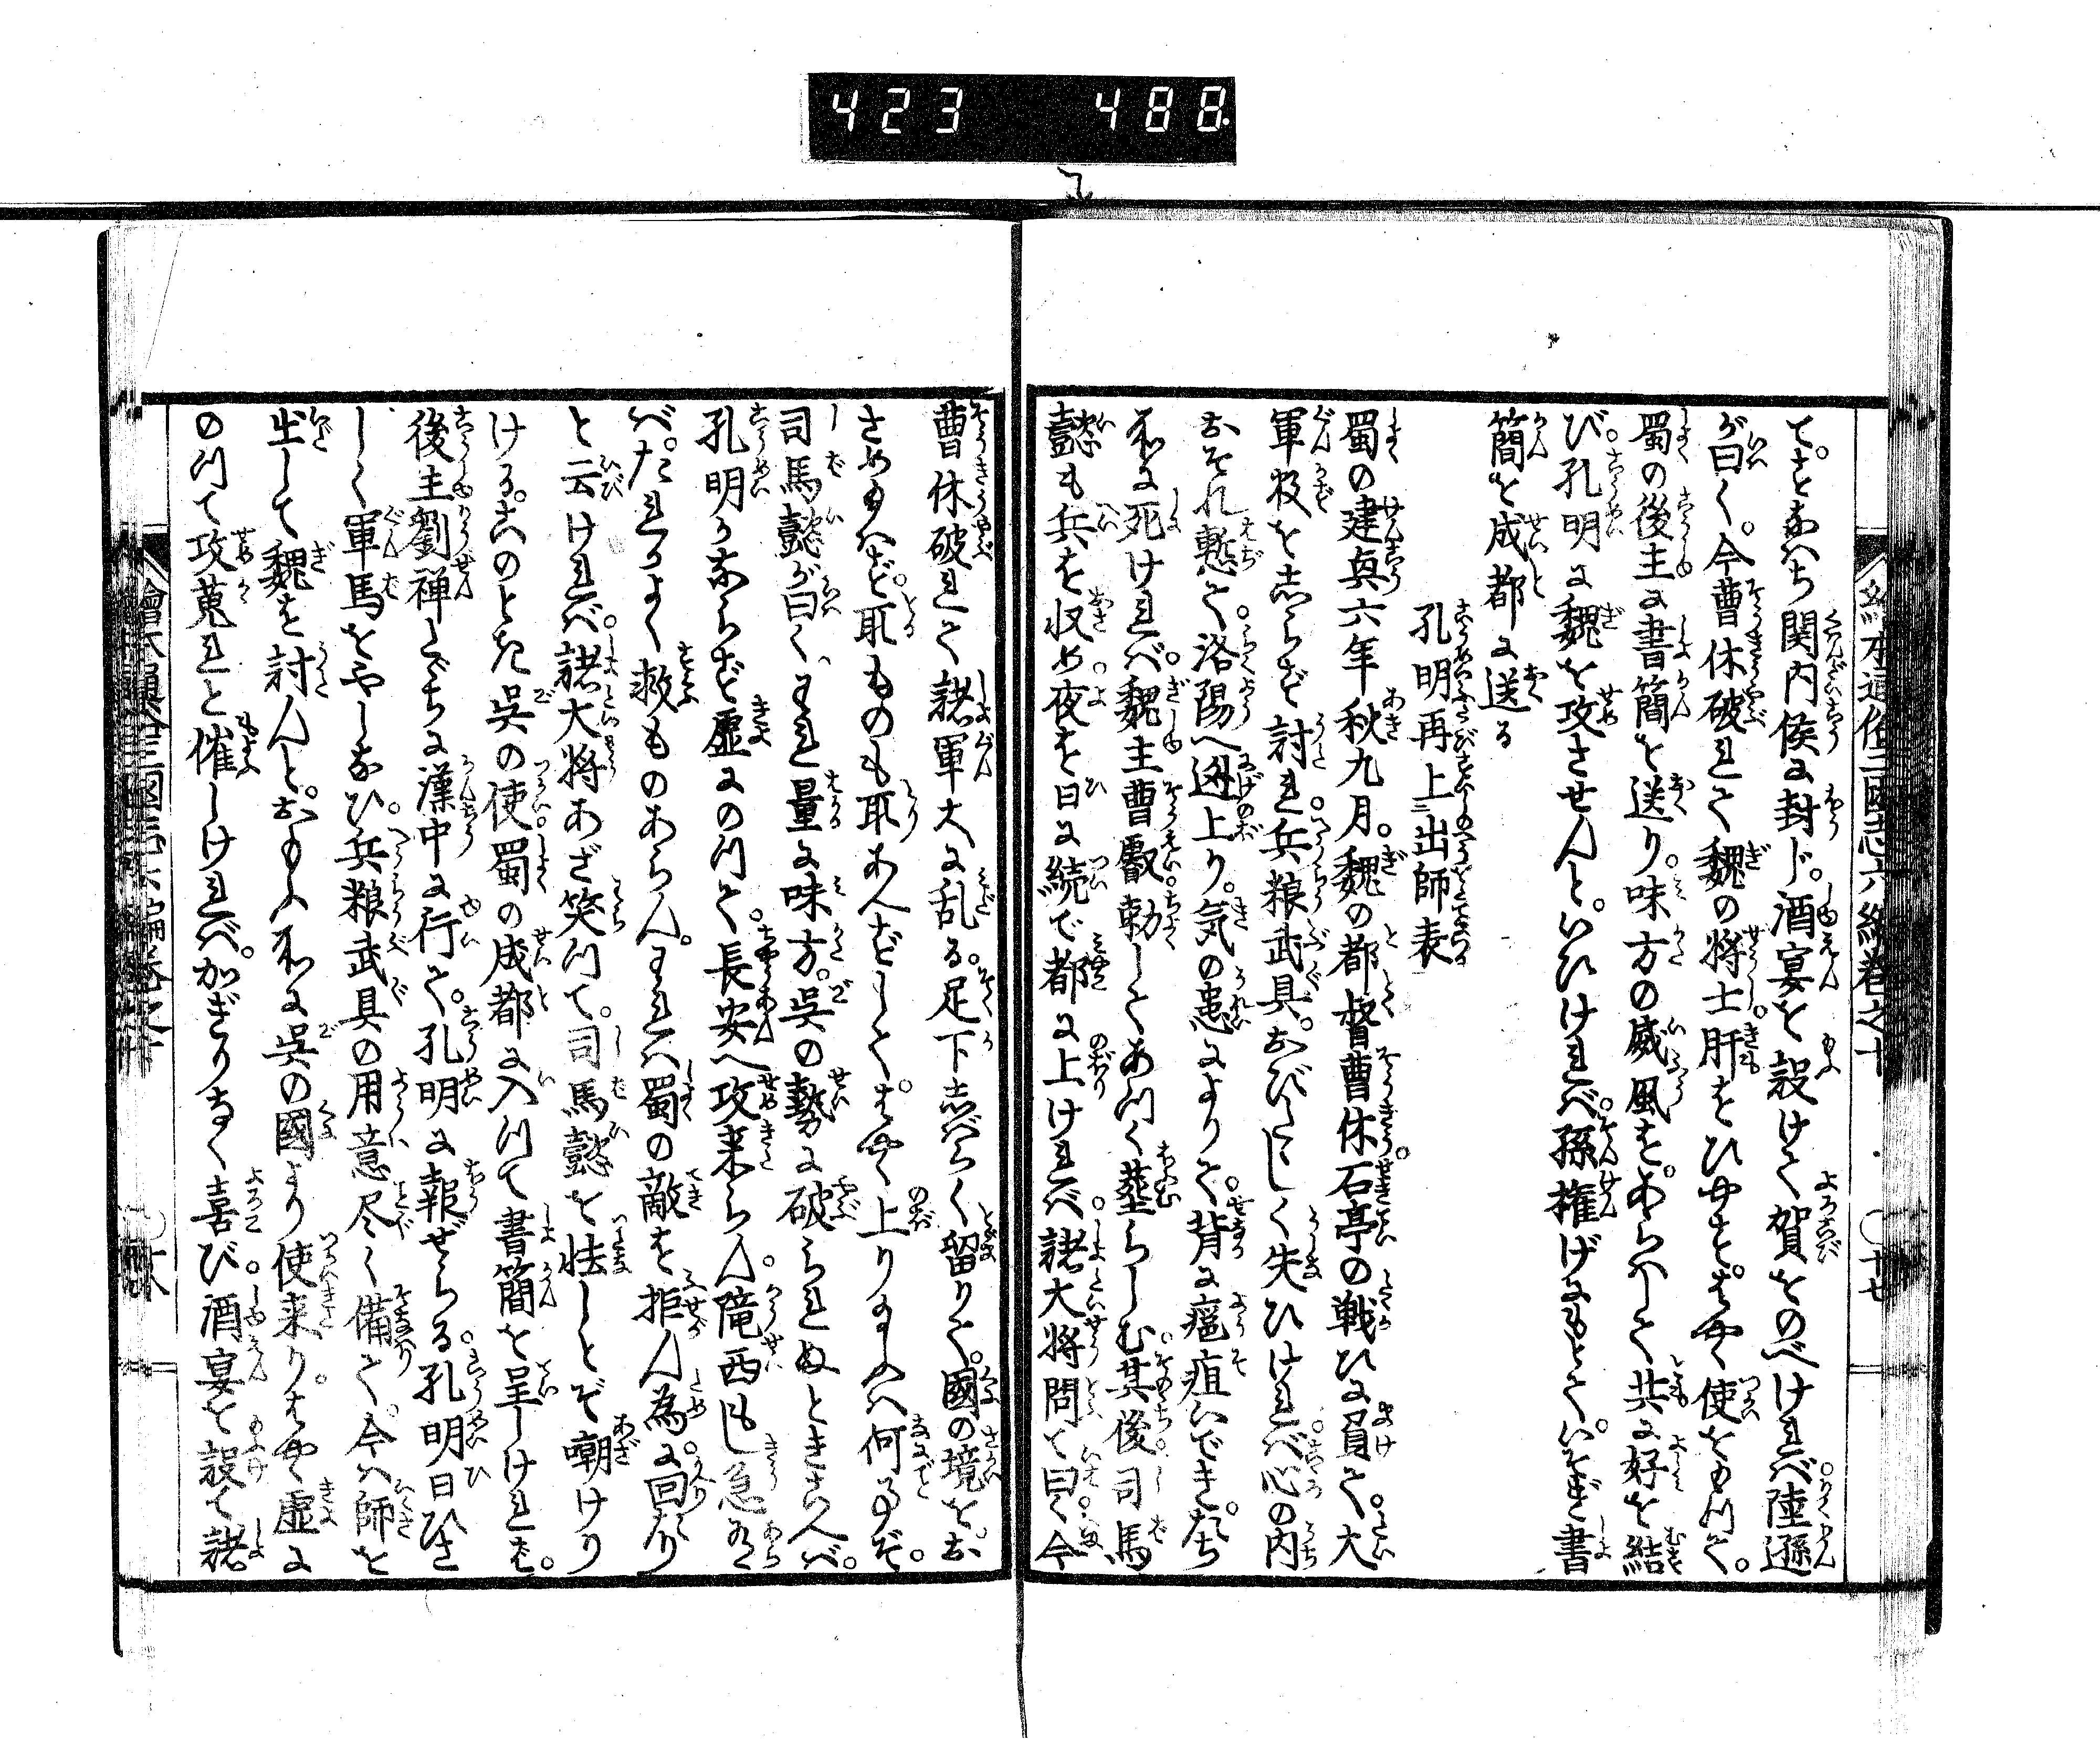 423 488
て。すなはち関内侯に封じ。酒宴を設けて賀をのべければ。陸遜
が曰く。今曹休破れて魏の将士肝をひやす。はやく使をもつて。
蜀の後主に書簡を送り。味方の威風を。あらはして共に好を結
び。孔明に魏を攻させんと。いひければ。孫権げにもとて。いそぎ書
簡を成都に送る
孔明再上出師表
蜀の建興六年秋九月。魏の都督曹休。石亭の戦ひに負て。大
軍数をしらず討れ。兵粮武具。おびたゝしく失ひければ。心の内
おそれ慙て。洛陽へ逃上り。気の患によりて。背に癌疽いでき。たち
に死ければ。魏主曹叡。勅してあつく葬らしむ。其後司馬
懿も兵を収め。夜を日に続で都に上ければ。諸大将問て曰く。今
曹休破れて諸軍大に乱る。足下しばらく留りて。國の境をお
さめ玉はず。取ものも取あへずして。はやく上り玉ふは何事ぞ。
司馬懿が曰く。われ量に味方。呉の勢に破られぬときこへば。
孔明かならず虚にのつて。長安へ攻来らん。隴西もし急あら
ば。たれかよく救ものあらん。われは蜀の敵を拒ん為に回たり
と云ければ。諸大将あざ笑つて。司馬懿を怯しとぞ嘲けり
ける。このとき呉の使。蜀の成都に入つて書簡を呈しければ。
後主劉禅すでに漢中に行て。孔明に報ぜらる。孔明日ひさ
しく軍馬をやしなひ。兵粮武具の用意尽く備て。今は師を
出して魏を討んと。おもふに呉の國より使来り。はやく虚に
のつて攻蒐れと催しければ。かぎりなく喜び。酒宴を設て諸